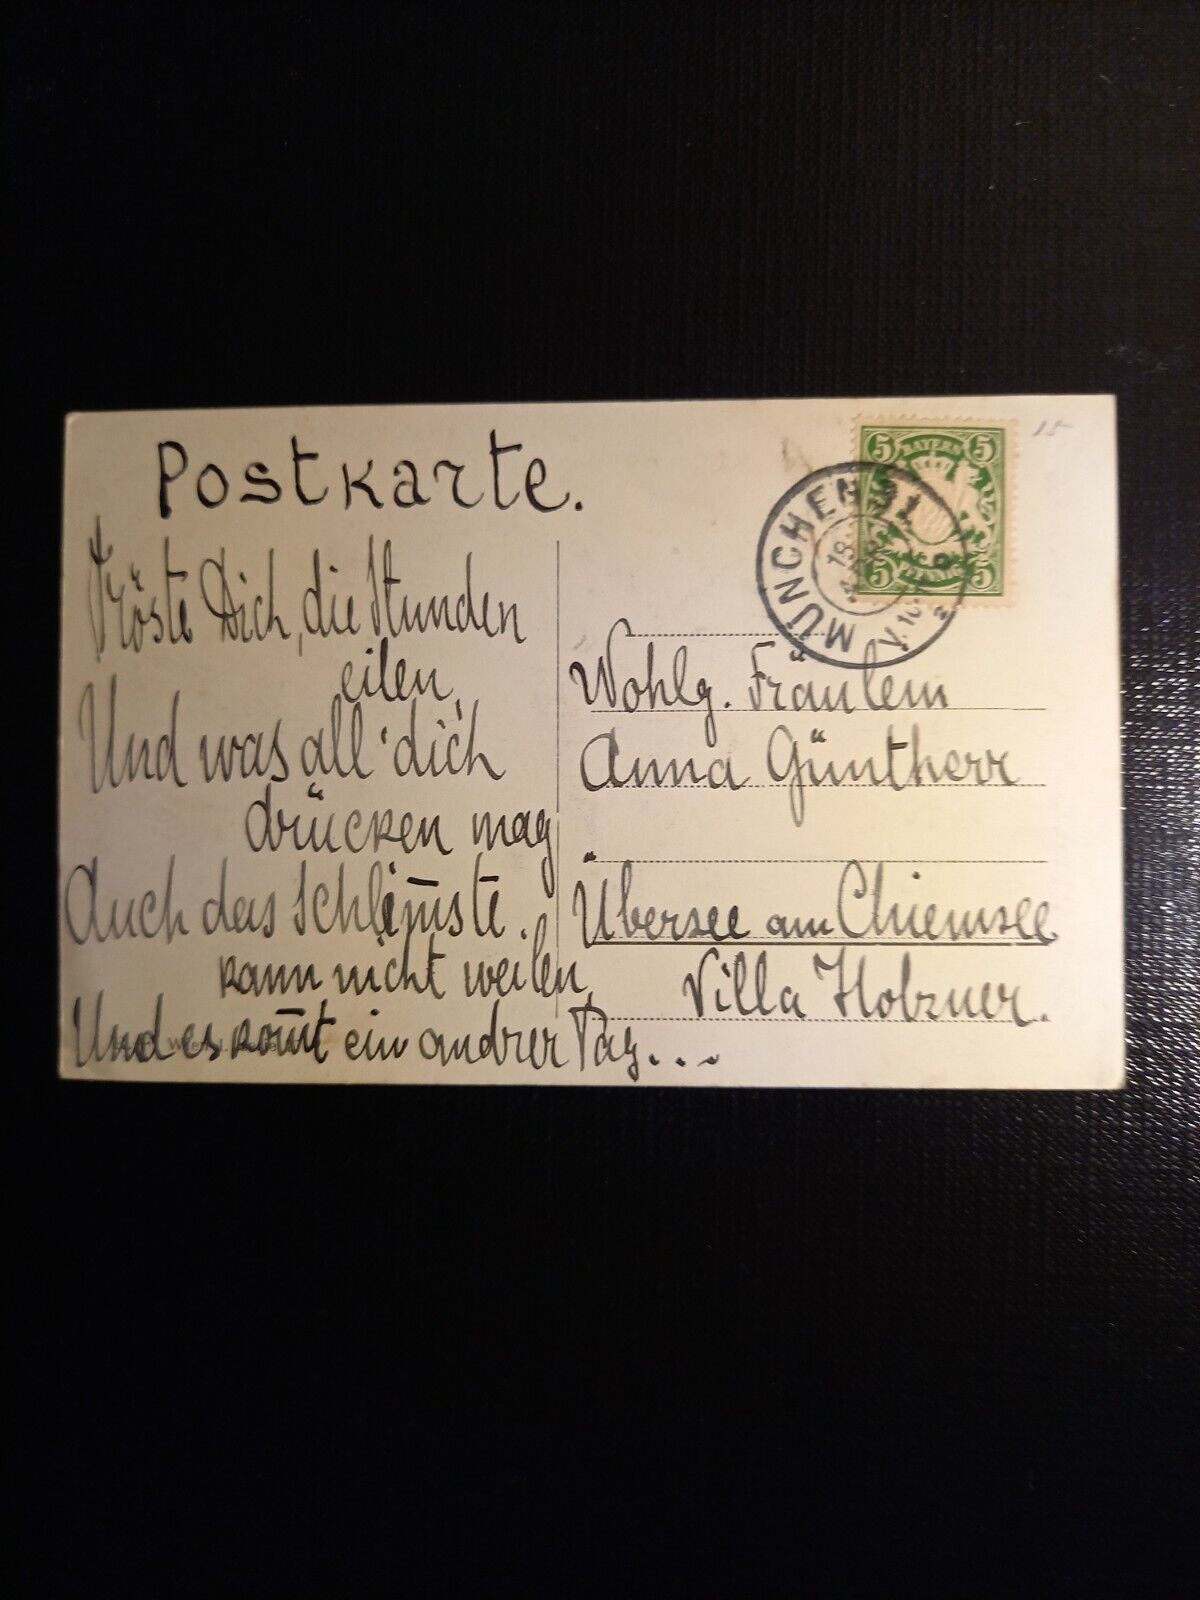 Postkarte.
Tröste Dich, die Stunden
eilen,
Und was all' dich
drücken mag
Auch das Schlim̅ste
kann nicht weilen,
Und es kom̅t ein andrer Tag...
Wohlg. Fräulein
Anna Güntherr
Übersee am Chiemsee
Villa Holzner.
MÜNCHEN 31
18
V. 10-11
5 BAYERN 5
5 5
15